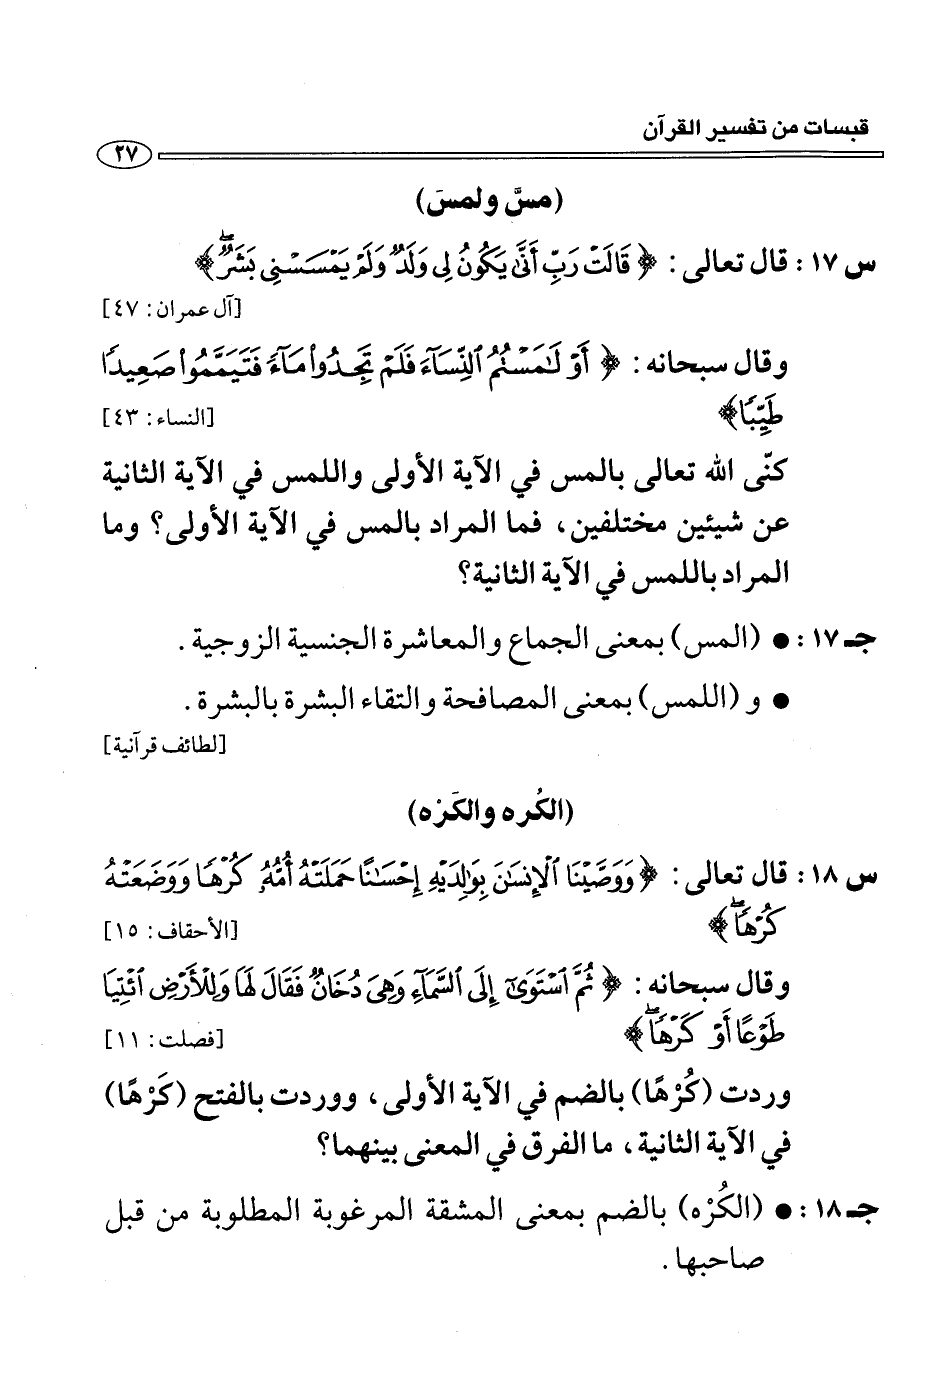 قبسات من تفسير القرآن
٢٧
(مسَّ ولمسَ)
س ١٧ : قال تعالى : ﴿ قَالَتْ رَبِّ أَنَّىٰ يَكُونُ لِى وَلَدٌ وَلَمْ يَمْسَسْنِى بَشَرٌ ۖ ﴾
[آل عمران : ٤٧]
وقال سبحانه : ﴿ أَوْ لَـٰمَسْتُمُ ٱلنِّسَآءَ فَلَمْ تَجِدُوا۟ مَآءً فَتَيَمَّمُوا۟ صَعِيدًا
طَيِّبًا ﴾
[النساء : ٤٣]
كنّى الله تعالى بالمس في الآية الأولى واللمس في الآية الثانية
عن شيئين مختلفين، فما المراد بالمس في الآية الأولى؟ وما
المراد باللمس في الآية الثانية؟
جـ ١٧ : ● (المس) بمعنى الجماع والمعاشرة الجنسية الزوجية .
● و (اللمس) بمعنى المصافحة والتقاء البشرة بالبشرة .
[لطائف قرآنية]
(الكُره والكَرْه)
س ١٨ : قال تعالى : ﴿ وَوَصَّيْنَا ٱلْإِنسَـٰنَ بِوَٰلِدَيْهِ إِحْسَـٰنًا حَمَلَتْهُ أُمُّهُۥ كُرْهًا وَوَضَعَتْهُ
كُرْهًا ۖ ﴾
[الأحقاف : ١٥]
وقال سبحانه : ﴿ ثُمَّ ٱسْتَوَىٰٓ إِلَى ٱلسَّمَآءِ وَهِىَ دُخَانٌ فَقَالَ لَهَا وَلِلْأَرْضِ ٱئْتِيَا
طَوْعًا أَوْ كَرْهًا ۖ ﴾
[فصلت : ١١]
وردت (كُرْهًا) بالضم في الآية الأولى، ووردت بالفتح (كَرْهًا)
في الآية الثانية، ما الفرق في المعنى بينهما؟
جـ ١٨ : ● (الكُرْه) بالضم بمعنى المشقة المرغوبة المطلوبة من قبل
صاحبها .